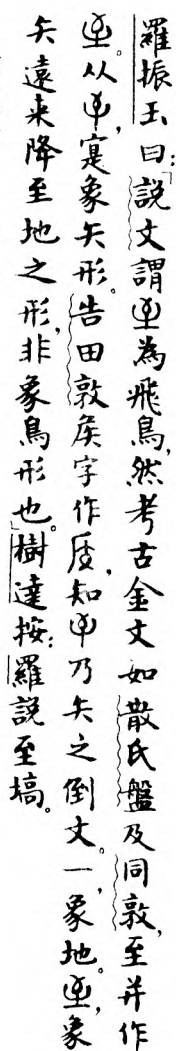 羅振玉曰：「說文謂𦤳為飛鳥，然考古金文如散氏盤及同敦，至并作
𦤳。从，寔象矢形。告田敦矦字作，知乃矢之倒文。一，象地。𦤳，象
矢遠来降至地之形，非象鳥形也。」樹達按：羅說至塙。